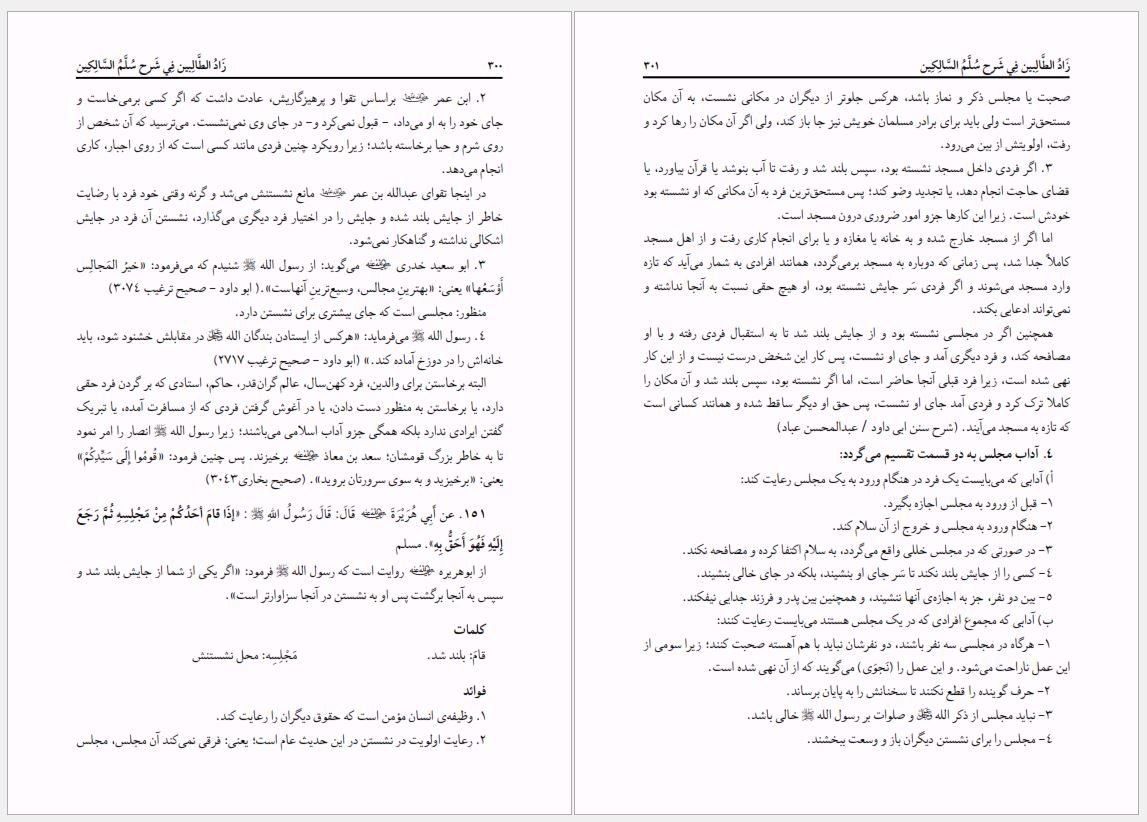 زَادُ الطَّالِبِين فِي شَرحِ سُلَّمُ السَّالِكِين
٣٠٠
٢. ابن عمر رضی‌الله‌عنهما براساس تقوا و پرهیزگاریش، عادت داشت که اگر کسی برمی‌خاست و
جای خود را به او می‌داد، - قبول نمی‌کرد و- در جای وی نمی‌نشست. می‌ترسید که آن شخص از
روی شرم و حیا برخاسته باشد؛ زیرا رویکرد چنین فردی مانند کسی است که از روی اجبار، کاری
انجام می‌دهد.
در اینجا تقوای عبدالله بن عمر رضی‌الله‌عنهما مانع نشستنش می‌شد و گرنه وقتی خود فرد با رضایت
خاطر از جایش بلند شده و جایش را در اختیار فرد دیگری می‌گذارد، نشستن آن فرد در جایش
اشکالی نداشته و گناهکار نمی‌شود.
٣. ابو سعید خدری رضی‌الله‌عنه می‌گوید: از رسول الله ﷺ شنیدم که می‌فرمود: «خیرُ المَجالِس
أَوْسَعُها» یعنی: «بهترینِ مجالس، وسیع‌ترینِ آنهاست».( ابو داود - صحیح ترغیب ٣٠٧٤)
منظور: مجلسی است که جای بیشتری برای نشستن دارد.
٤. رسول الله ﷺ می‌فرماید: «هرکس از ایستادن بندگان الله ﷻ در مقابلش خشنود شود، باید
خانه‌اش را در دوزخ آماده کند.» (ابو داود - صحیح ترغیب ٢٧١٧)
البته برخاستن برای والدین، فرد کهن‌سال، عالم گران‌قدر، حاکم، استادی که بر گردن فرد حقی
دارد، یا برخاستن به منظور دست دادن، یا در آغوش گرفتن فردی که از مسافرت آمده، یا تبریک
گفتن ایرادی ندارد بلکه همگی جزو آداب اسلامی می‌باشند؛ زیرا رسول الله ﷺ انصار را امر نمود
تا به خاطر بزرگ قومشان؛ سعد بن معاذ رضی‌الله‌عنه برخیزند. پس چنین فرمود: «قُومُوا إِلَى سَيِّدِكُمْ»
یعنی: «برخیزید و به سوی سرورتان بروید». (صحیح بخاری٣٠٤٣)
١٥١. عن أَبِي هُرَيْرَةَ رضی‌الله‌عنه قَالَ: قَالَ رَسُولُ اللهِ ﷺ : «إِذَا قامَ أَحَدُكُمْ مِنْ مَجْلِسِهِ ثُمَّ رَجَعَ
إِلَيْهِ فَهُوَ أَحَقُّ بِهِ». مسلم
از ابوهریره رضی‌الله‌عنه روایت است که رسول الله ﷺ فرمود: «اگر یکی از شما از جایش بلند شد و
سپس به آنجا برگشت پس او به نشستن در آنجا سزاوارتر است».
کلمات
قامَ: بلند شد. مَجْلِسِه: محل نشستنش
فوائد
١. وظیفه‌ی انسان مؤمن است که حقوق دیگران را رعایت کند.
٢. رعایت اولویت در نشستن در این حدیث عام است؛ یعنی: فرقی نمی‌کند آن مجلس، مجلس
زَادُ الطَّالِبِين فِي شَرحِ سُلَّمُ السَّالِكِين
٣٠١
صحبت یا مجلس ذکر و نماز باشد، هرکس جلوتر از دیگران در مکانی نشست، به آن مکان
مستحق‌تر است ولی باید برای برادر مسلمان خویش نیز جا باز کند، ولی اگر آن مکان را رها کرد و
رفت، اولویتش از بین می‌رود.
٣. اگر فردی داخل مسجد نشسته بود، سپس بلند شد و رفت تا آب بنوشد یا قرآن بیاورد، یا
قضای حاجت انجام دهد، یا تجدید وضو کند؛ پس مستحق‌ترین فرد به آن مکانی که او نشسته بود
خودش است. زیرا این کارها جزو امور ضروری درون مسجد است.
اما اگر از مسجد خارج شده و به خانه یا مغازه و یا برای انجام کاری رفت و از اهل مسجد
کاملاً جدا شد، پس زمانی که دوباره به مسجد برمی‌گردد، همانند افرادی به شمار می‌آید که تازه
وارد مسجد می‌شوند و اگر فردی سَر جایش نشسته بود، او هیچ حقی نسبت به آنجا نداشته و
نمی‌تواند ادعایی بکند.
همچنین اگر در مجلسی نشسته بود و از جایش بلند شد تا به استقبال فردی رفته و با او
مصافحه کند، و فرد دیگری آمد و جای او نشست، پس کار این شخص درست نیست و از این کار
نهی شده است، زیرا فرد قبلی آنجا حاضر است، اما اگر نشسته بود، سپس بلند شد و آن مکان را
کاملا ترک کرد و فردی آمد جای او نشست، پس حق او دیگر ساقط شده و همانند کسانی است
که تازه به مسجد می‌آیند. (شرح سنن ابی داود / عبدالمحسن عباد)
٤. آداب مجلس به دو قسمت تقسیم می‌گردد:
أ) آدابی که می‌بایست یک فرد در هنگام ورود به یک مجلس رعایت کند:
١- قبل از ورود به مجلس اجازه بگیرد.
٢- هنگام ورود به مجلس و خروج از آن سلام کند.
٣- در صورتی که در مجلس خللی واقع می‌گردد، به سلام اکتفا کرده و مصافحه نکند.
٤- کسی را از جایش بلند نکند تا سَر جای او بنشیند، بلکه در جای خالی بنشیند.
٥- بین دو نفر، جز به اجازه‌ی آنها ننشیند، و همچنین بین پدر و فرزند جدایی نیفکند.
ب) آدابی که مجموع افرادی که در یک مجلس هستند می‌بایست رعایت کنند:
١- هرگاه در مجلسی سه نفر باشند، دو نفرشان نباید با هم آهسته صحبت کنند؛ زیرا سومی از
این عمل ناراحت می‌شود. و این عمل را (نَجوَی) می‌گویند که از آن نهی شده است.
٢- حرف گوینده را قطع نکنند تا سخنانش را به پایان برساند.
٣- نباید مجلس از ذکر الله ﷻ و صلوات بر رسول الله ﷺ خالی باشد.
٤- مجلس را برای نشستن دیگران باز و وسعت ببخشند.